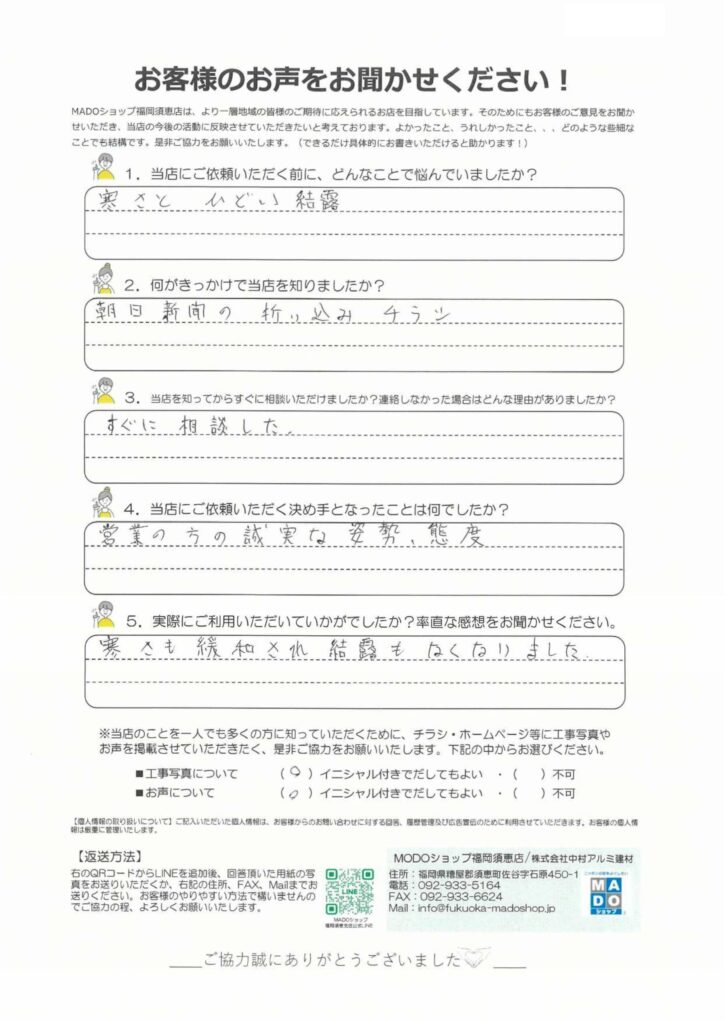 お客様のお声をお聞かせください！
MADOショップ福岡須恵店は、より一層地域の皆様のご期待に応えられるお店を目指しています。そのためにもお客様のご意見をお聞か
せいただき、当店の今後の活動に反映させていただきたいと考えております。よかったこと、うれしかったこと、、、どのような些細な
ことでも結構です。是非ご協力をお願いいたします。（できるだけ具体的にお書きいただけると助かります！）
1．当店にご依頼いただく前に、どんなことで悩んでいましたか？
寒さと ひどい結露
2．何がきっかけで当店を知りましたか？
朝日新聞の 折り込み チラシ
3．当店を知ってからすぐに相談いただけましたか？連絡しなかった場合はどんな理由がありましたか？
すぐに 相談した.
4．当店にご依頼いただく決め手となったことは何でしたか？
営業の方の誠実な姿勢、態度
5．実際にご利用いただいていかがでしたか？率直な感想をお聞かせください。
寒さも緩和され 結露も なくなりました.
※当店のことを一人でも多くの方に知っていただくために、チラシ・ホームページ等に工事写真や
お声を掲載させていただきたく、是非ご協力をお願いいたします。下記の中からお選びください。
■工事写真について （○）イニシャル付きでだしてもよい ・（ ）不可
■お声について （○）イニシャル付きでだしてもよい ・（ ）不可
【個人情報の取り扱いについて】ご記入いただいた個人情報は、お客様からのお問い合わせに対する回答、履歴管理及び広告宣伝のために利用させていただきます。お客様の個人情
報は厳重に管理いたします。
【返送方法】
右のQRコードからLINEを追加後、回答頂いた用紙の写
真をお送りいただくか、右記の住所、FAX、Mailまでお
送りください。お客様のやりやすい方法で構いませんの
でご協力の程、よろしくお願いいたします。
LINE
MADOショップ
福岡須恵支店公式LINE
MODOショップ福岡須恵店/株式会社中村アルミ建材
住所：福岡県糟屋郡須恵町佐谷字石原450-1
電話：092-933-5164
FAX：092-933-6624
Mail：info@fukuoka-madoshop.jp
MADO
ショップ
ご協力誠にありがとうございました